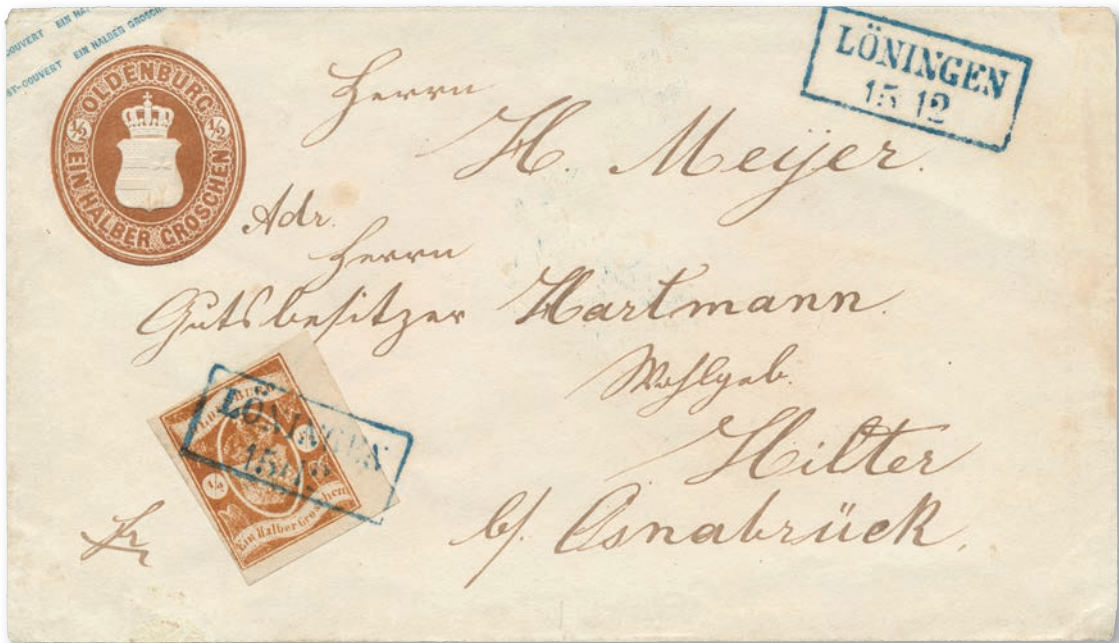 COUVERT EIN HA
ST-COUVERT EIN HALBER GROSCH
OLDENBURG
½ ½
EIN HALBER GROSCHEN
LÖNINGEN
15 12
Herrn
H. Meyer.
Adr.
Herrn
Gutsbesitzer Hartmann.
Wohlgeb.
Hilter
b/ Osnabrück.
fr
OLDENBURG
LÖNINGEN
15 12
½
Ein Halber Groschen